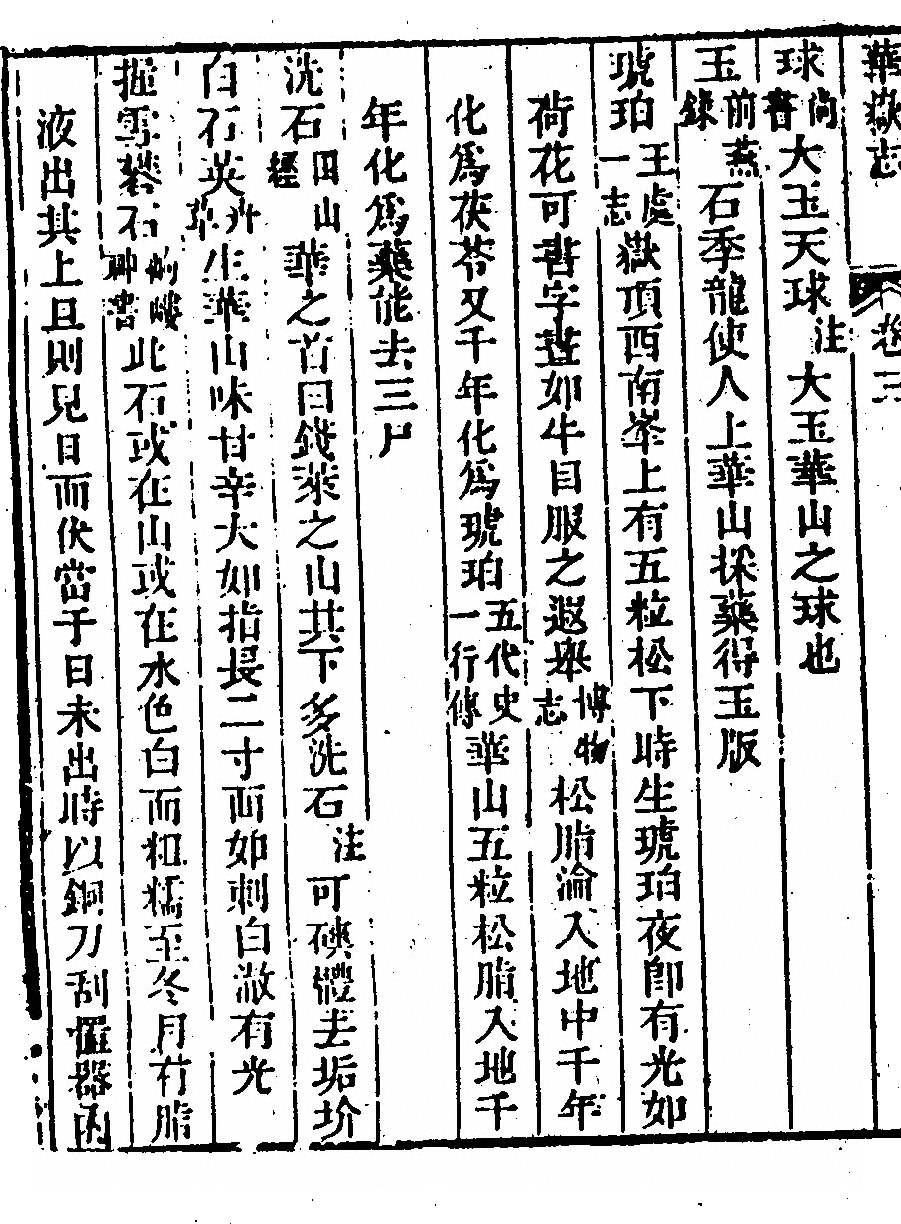 華嶽志 卷三
球尚書大玉天球注大玉華山之球也
玉前燕錄石季龍使人上華山採藥得玉版
琥珀王處一志嶽頂西南峯上有五粒松下時生琥珀夜卽有光如
荷花可書字晝如牛目服之遐舉博物志松脂淪入地中千年
化爲茯苓又千年化爲琥珀五代史一行傳華山五粒松脂入地千
年化爲藥能去三尸
洗石西山經華之首曰錢來之山其下多洗石注可磢體去垢圿
白石英本草生華山味甘辛大如指長二寸面如削白澈有光
握雪礬石岣嶁神書此石或在山或在水色白而粗糯至冬月有脂
液出其上旦則見日而伏當于日未出時以銅刀刮置器函